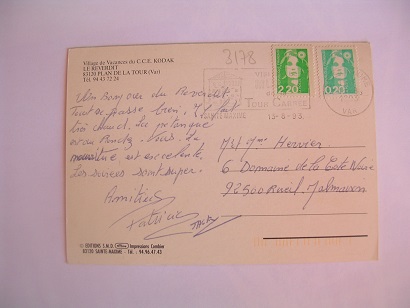 Village de Vacances du C.C.E. KODAK
LE REVERDIT
83120 PLAN DE LA TOUR (Var)
Tél. 94 43 72 24
3178
2,20
0,20
SAINTE MAXIME
13-8-93
VAR
Un Bonjour du Reverdit.
Tout se passe bien. Il fait
très chaud. La pétanque
est au Rendez-Vous. la
est excellente.
Les soirées sont super.
Amitiés
Patrick
Mr Mme Hervier
6 Domaine de la Côte Noire
92500 Rueil Malmaison
ÉDITIONS S.M.D. Impressions Combier
83120 SAINTE-MAXIME - Tél. : 94.96.47.43